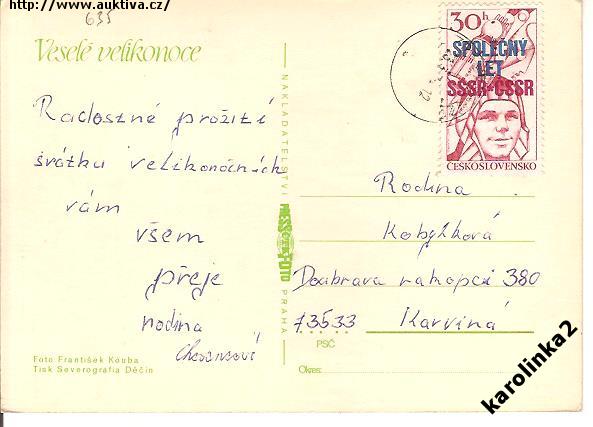 https://www.auktiva.cz/
635
Veselé velikonoce
Radostné prožití
svátků velikonočních
vám
všem
přeje
rodina
Foto František Kouba
Tisk Severografia Děčín
NAKLADATELSTVÍ
PRESSFOTO
PRAHA
30h
SPOLEČNÝ
LET
SSSR-ČSSR
ČESKOSLOVENSKO
Rodina
Kobylková
Doubrava na kopci 380
73533 Karviná
PSČ
Okres:
karolinka2